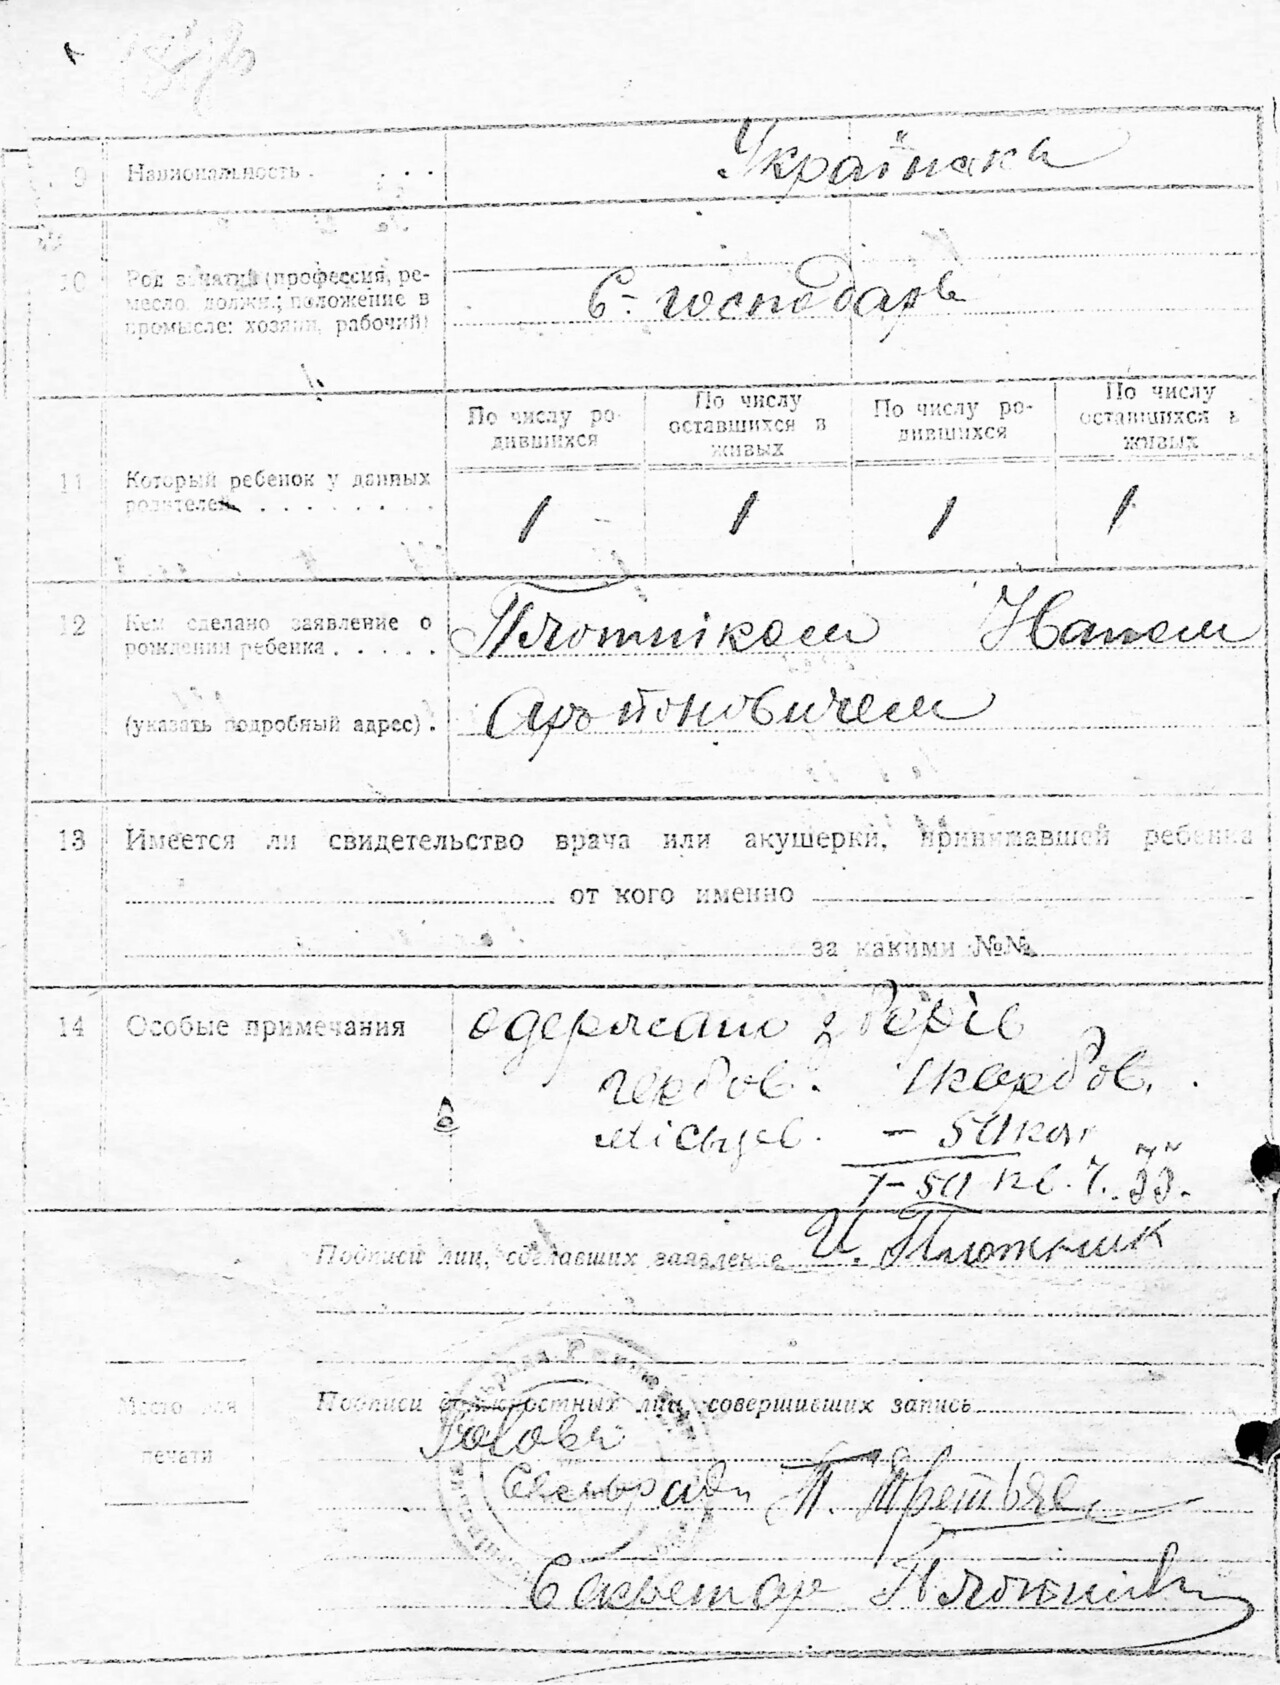 9 Национальность . . . . Українка
10 Род занятий (профессия, ре-
месло, должн.; положение в
промысле: хозяин, рабочий) С-господарь
По числу ро-
дившихся
По числу
оставшихся в
живых
По числу ро-
дившихся
По числу
оставшихся в
живых
11 Который ребенок у данных
родителей . . . . . . . . 1 1 1 1
12 Кем сделано заявление о
рождении ребенка . . . . . Плотніком
(указать подробный адрес) .
13 Имеется ли свидетельство врача или акушерки, принимавшей ребенка
от кого именно
за какими №№
14 Особые примечания одержано зборів
гербов.
місцев. – 50 коп
Подписи лиц, сделавших заявление И. Плотник
Место для
печати
Подписи должностных лиц, совершивших запись
Голова
Сельради П. Третьяк
Секретар